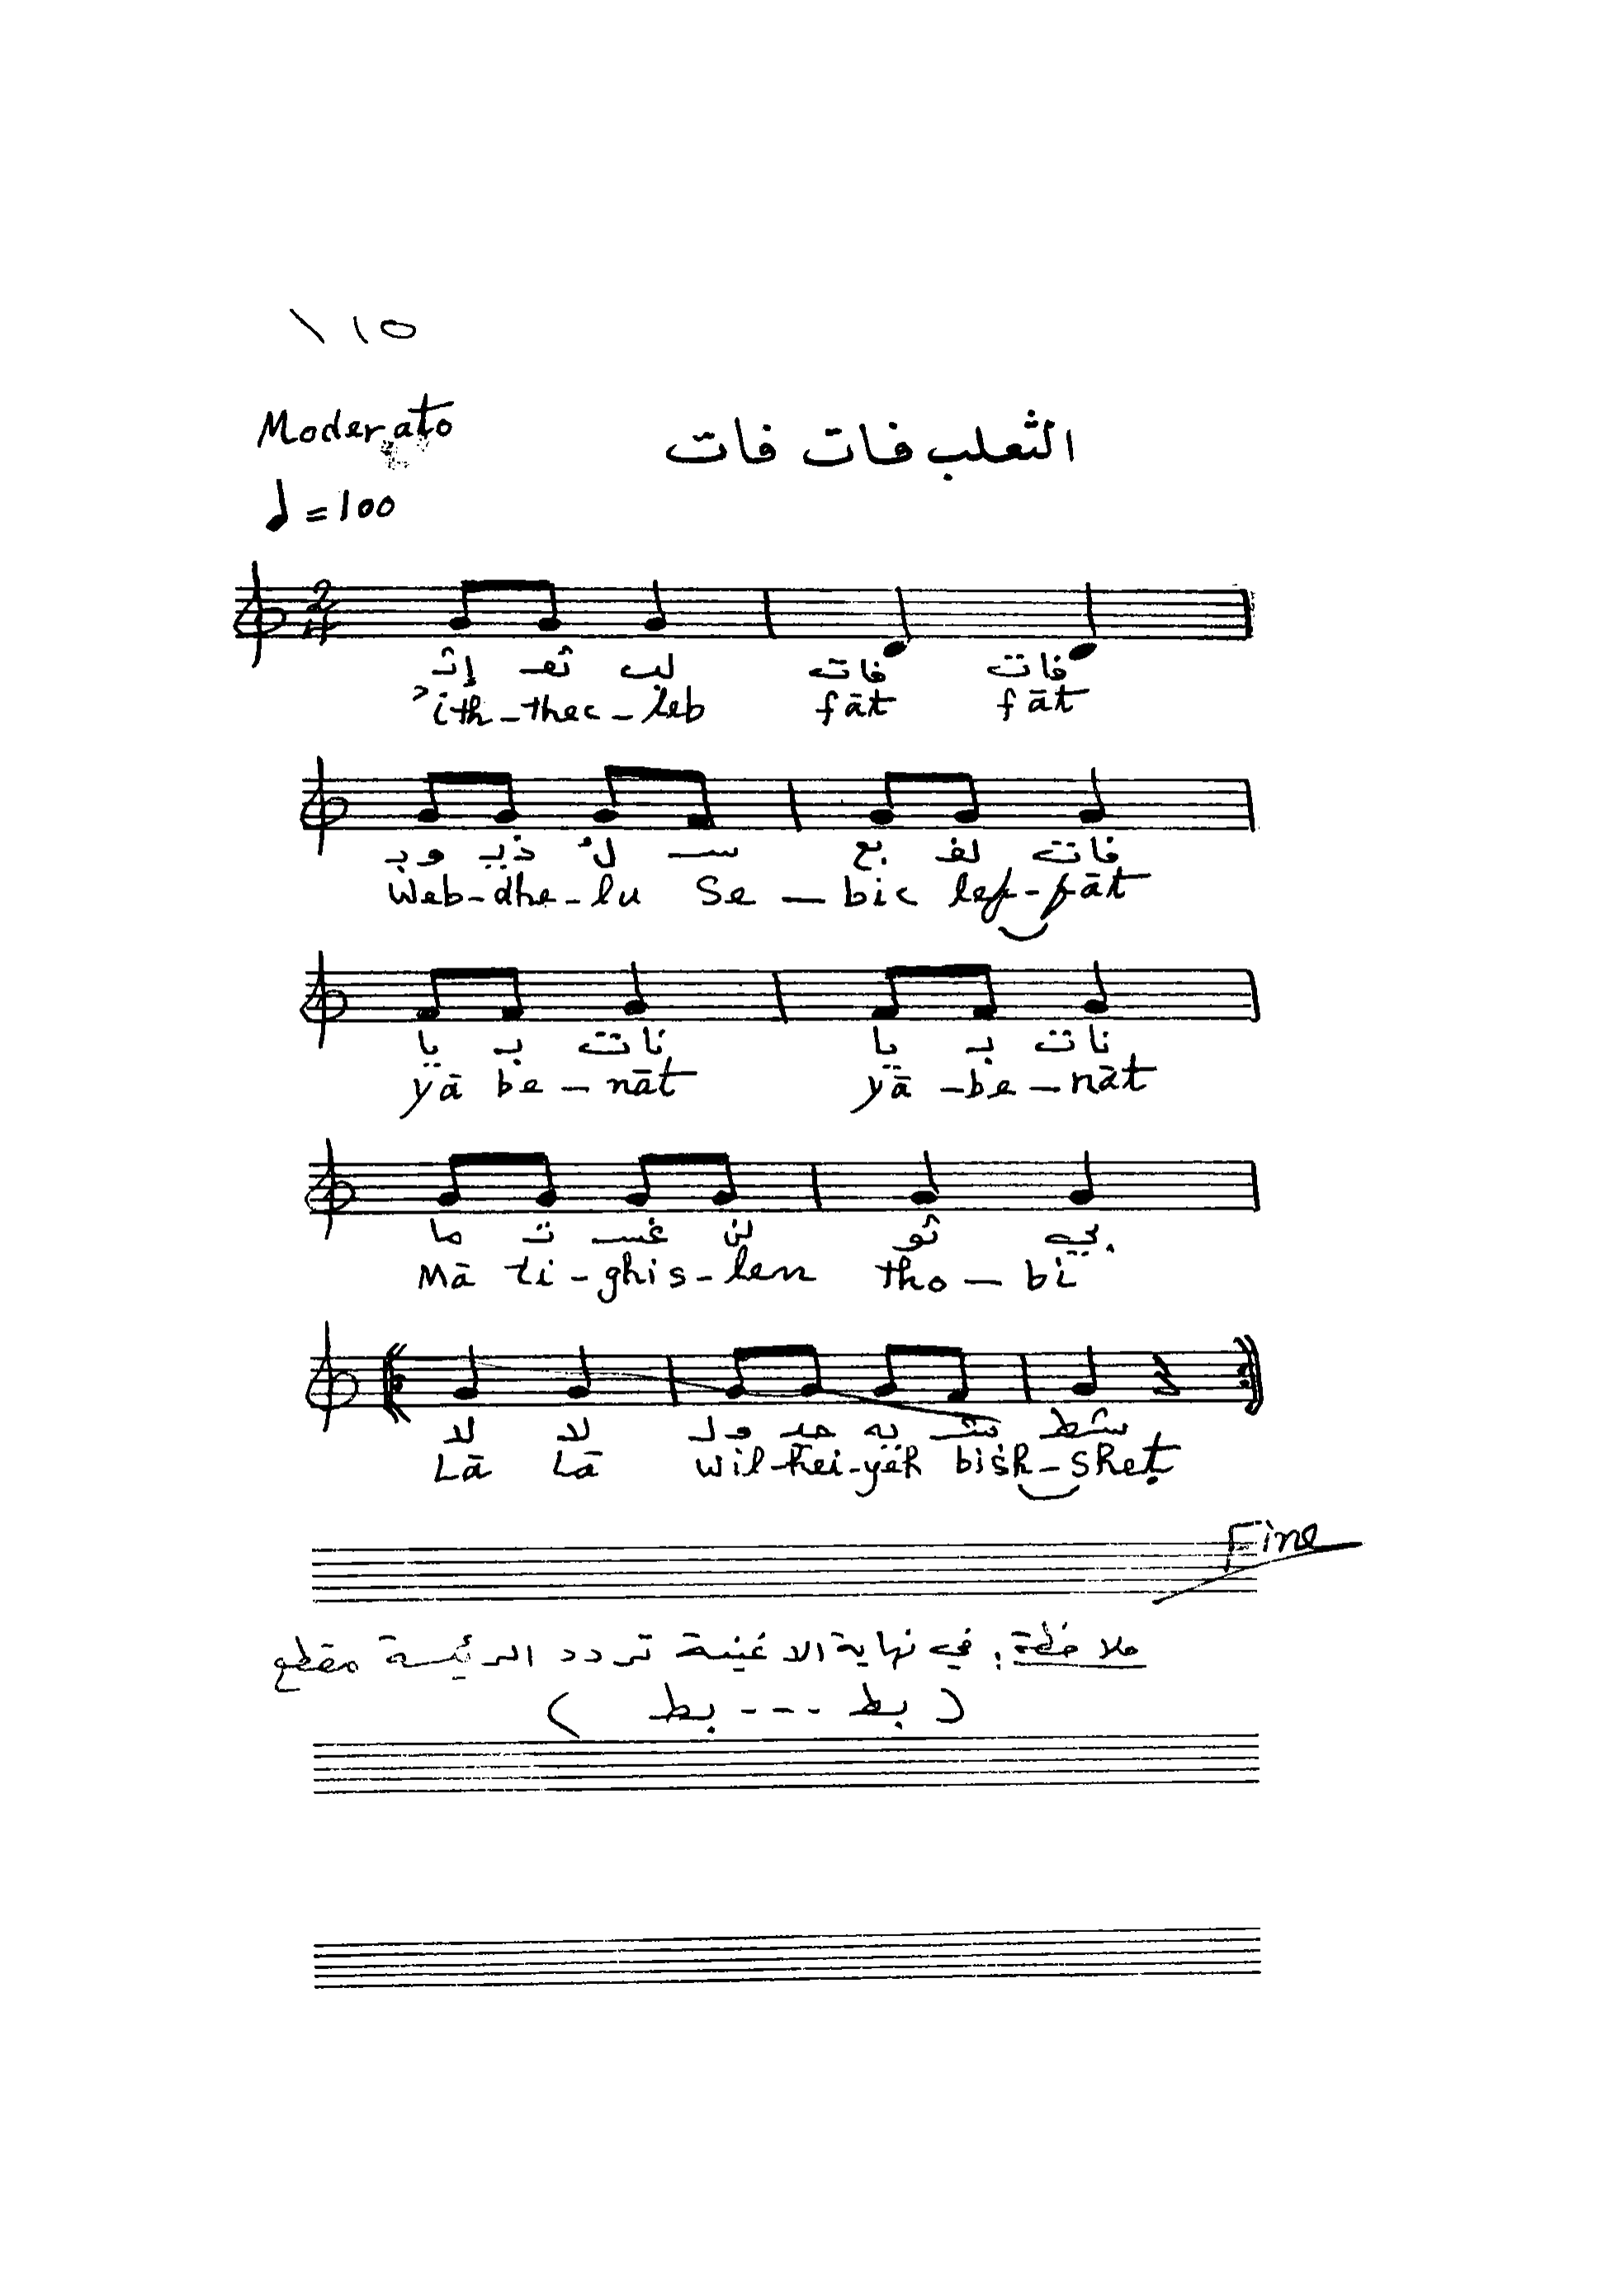 ١١٥
Moderato
الثعلب فات فات
♩ = 100
2/4
إث ثعـ لب فات فات
'ith-thec-leb fāt fāt
وبـ ذيـ لُ سـ بع لفـ فات
Web-dhe-lu Se-bic lef-fāt
يا بـ نات يا بـ نات
yā be-nāt yā-be-nāt
ما تـ غسـ لن ثو بي
Mā ti-ghis-len tho-bi
لا لا ولـ حيـ يه بشـ شط
Lā Lā wil-hei-yeh bish-sheṭ
Fine
ملاحظة: في نهاية الاغنية تردد الرئيسة مقطع
( بط --- بط )